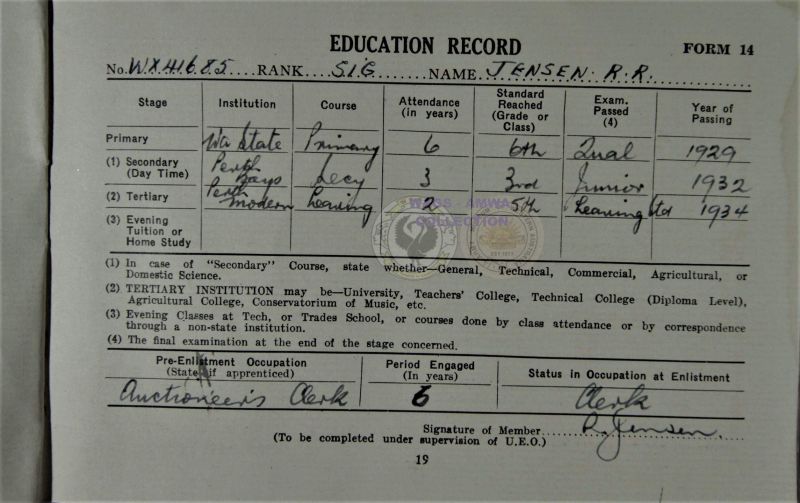 EDUCATION RECORD FORM 14
No. WX41685 RANK SIG NAME JENSEN. R.R.
Stage Institution Course Attendance (in years) Standard Reached (Grade or Class) Exam. Passed (4) Year of Passing
Primary Wa State Primary 6 6th Qual 1929
(1) Secondary (Day Time) Perth Boys Secy 3 3rd Junior 1932
(2) Tertiary Perth Modern Leaving 2 5th Leaving 1934
(3) Evening Tuition or Home Study
WGSS - AMWA
COLLECTION
(1) In case of "Secondary" Course, state whether—General, Technical, Commercial, Agricultural, or
Domestic Science.
(2) TERTIARY INSTITUTION may be—University, Teachers' College, Technical College (Diploma Level),
Agricultural College, Conservatorium of Music, etc.
(3) Evening Classes at Tech, or Trades School, or courses done by class attendance or by correspondence
through a non-state institution.
(4) The final examination at the end of the stage concerned.
Pre-Enlistment Occupation (State if apprenticed) Period Engaged (In years) Status in Occupation at Enlistment
Auctioneer's Clerk 5 Clerk
Signature of Member R. Jensen.
(To be completed under supervision of U.E.O.)
19